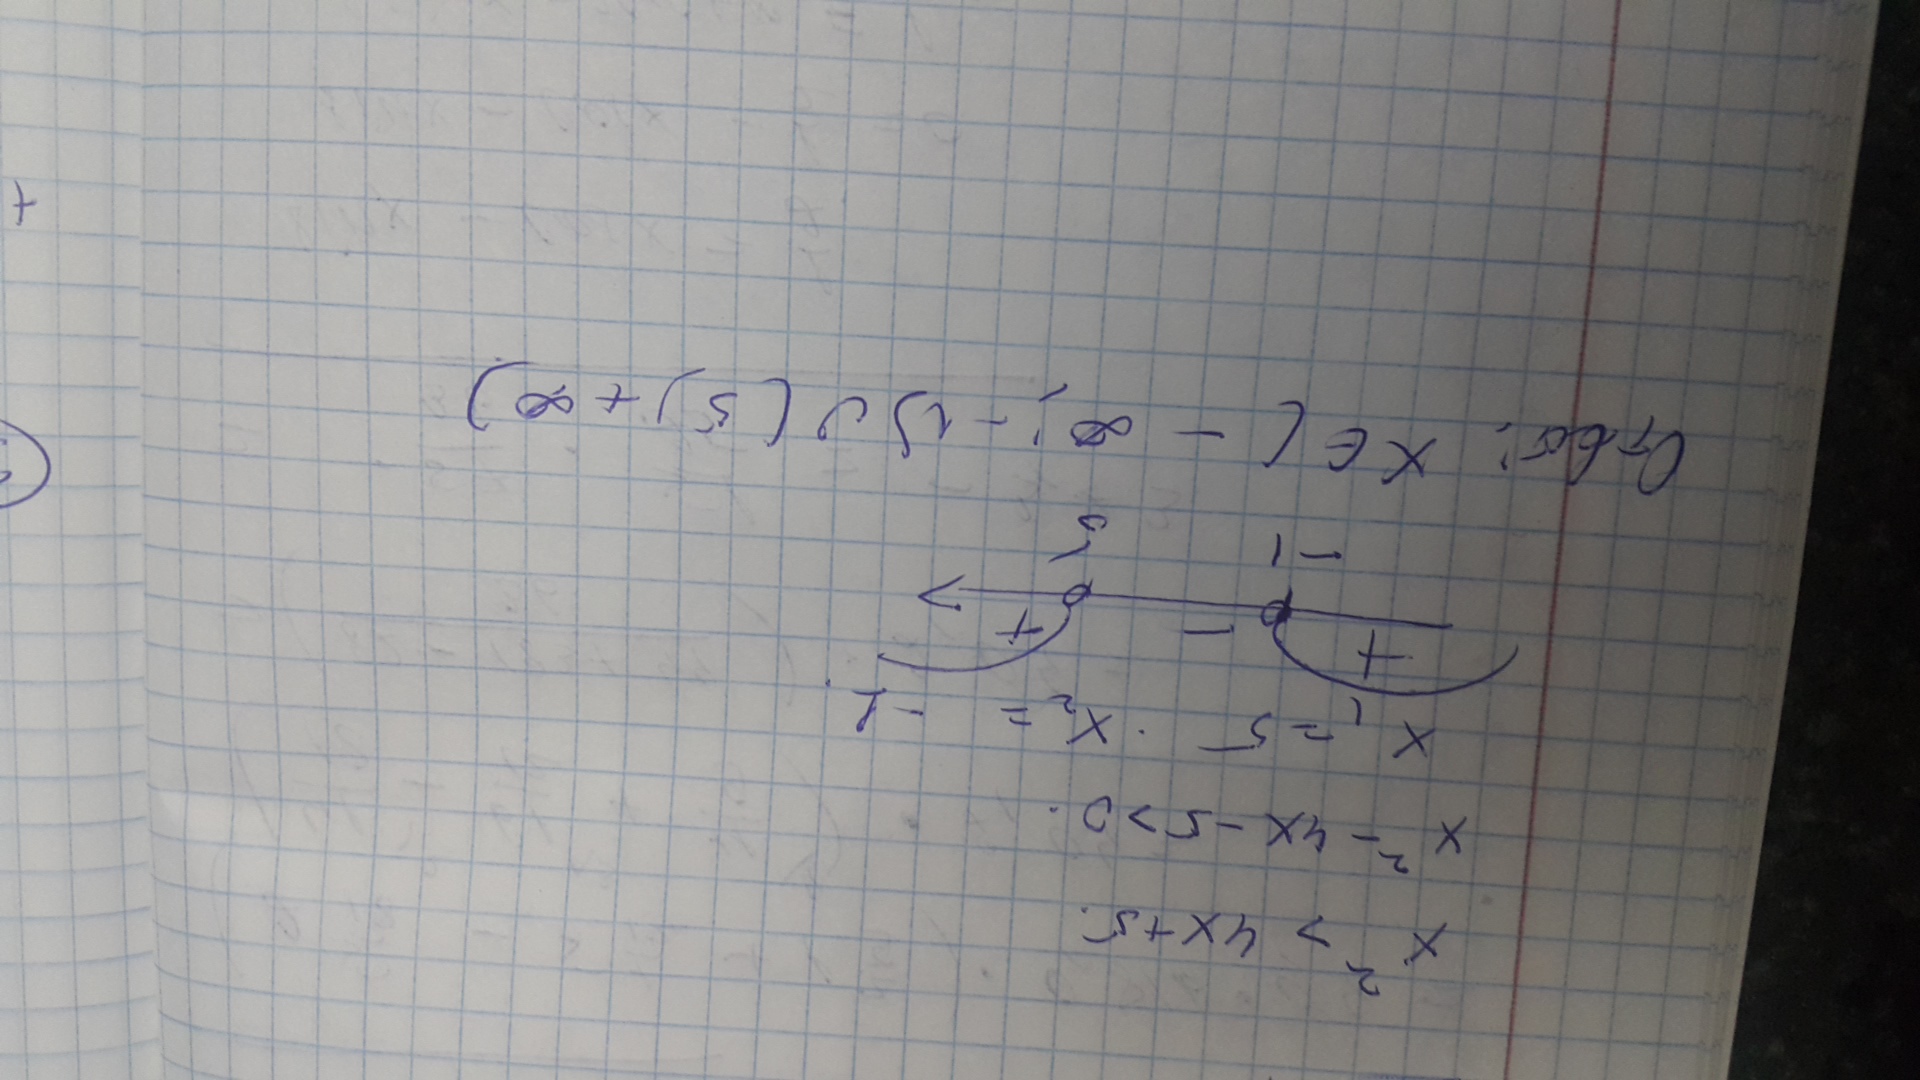 x² > 4x+5.
x² - 4x - 5 > 0.
x₁ = 5 . x₂ = -1.
+ - +
-1 5
Ответ: x ∈ (-∞; -1) ∪ (5; +∞)
+